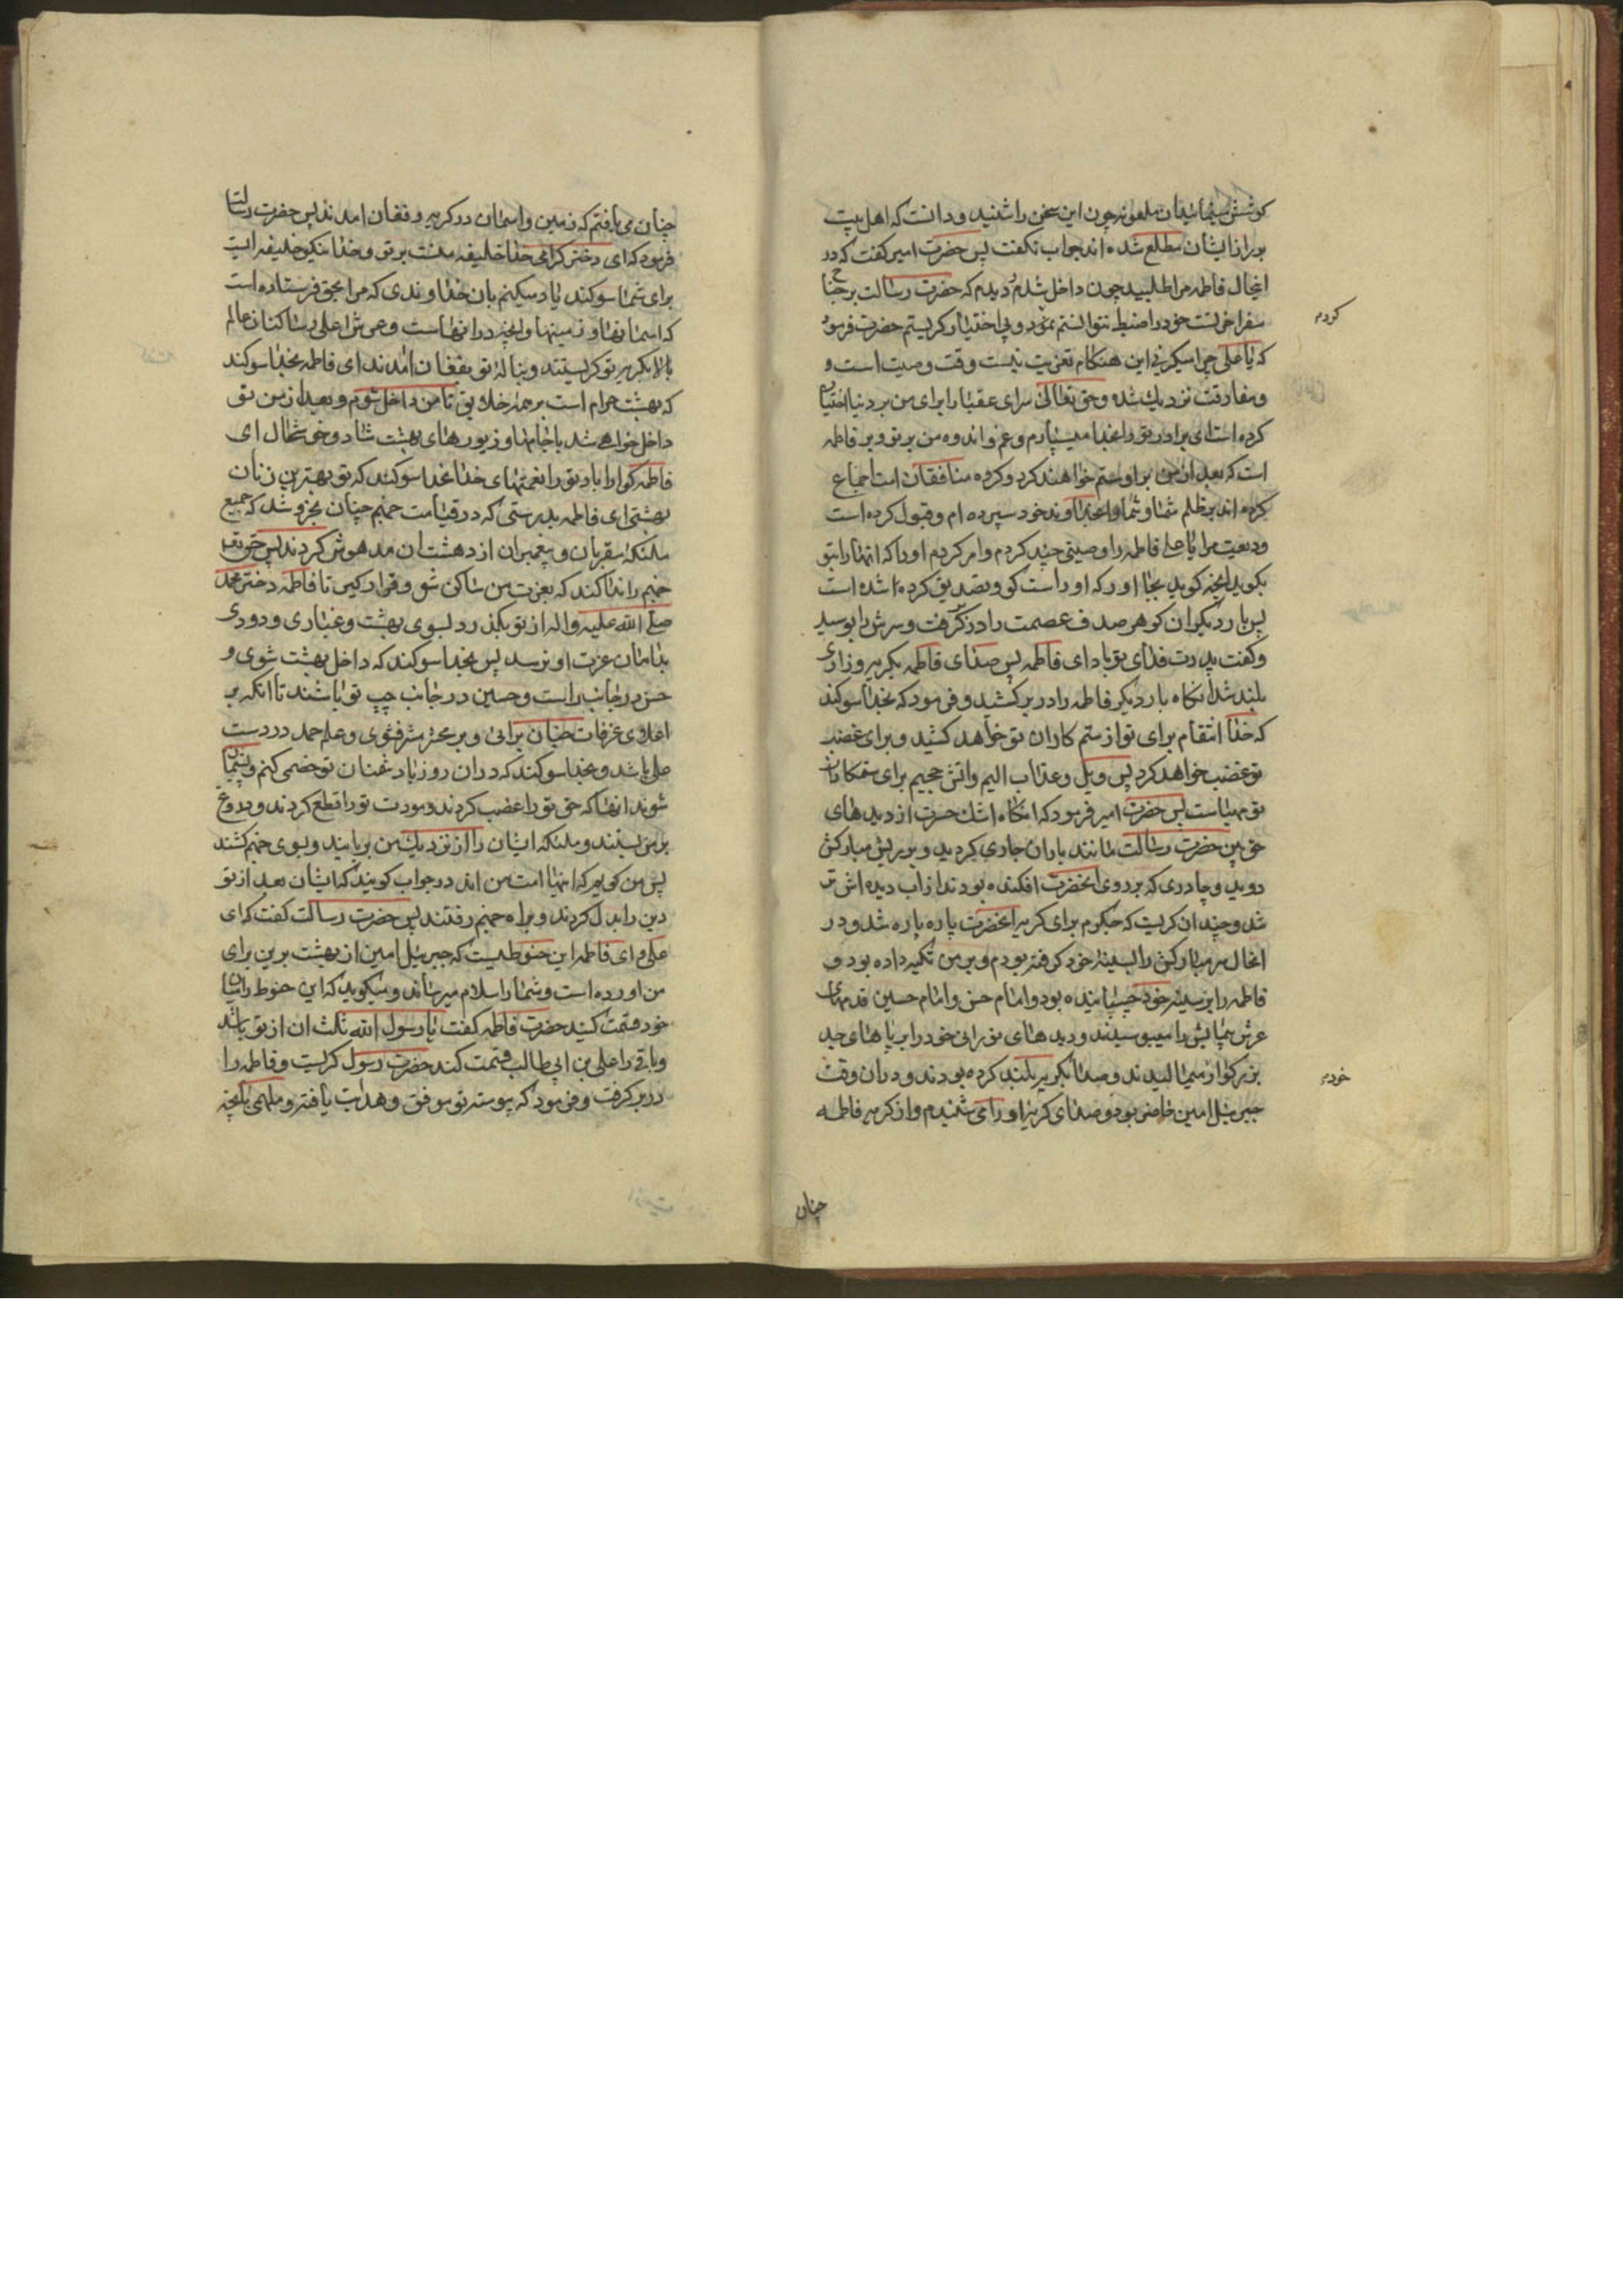 کوشش میماییدان ملعونه چون این سخن را شنید و دانست که اهل بیت
بر راز ایشان مطلع شده اند جواب نکفت پس حضرت امیر کفت که در
انحال فاطمه مرا طلبید چون داخل شدم دیدم که حضرت رسالت بر جناح
سفر اخرتست خود را ضبط نتوانستم نمود و بی اختیار کریستم حضرت فرمود
که یا علی چرا میکریی این هنکام تعزیت نیست وقت وصیت است و
و مفارقت نزدیک شده و حق تعالی سرای عقبا را برای من بر دنیا اختیار
کرده است ای برادر تو را بخدا میسپارم و غم و اندوه من بر تو و بر فاطمه
است که بعد از من بر او ستم خواهند کرد و کروه منافقان امت اجماع
کرده اند بر ظلم شما و شما را بخداوند خود سپرده ام و قبول کرده است
ودیعت مرا یا علی فاطمه را وصیتی چند کردم و امر کردم او را که انها را بتو
بکوید انچه کوید بجا اور که او راست کو و تصدیق کرده شده است
پس بار دیکر ان کوهر صدف عصمت را در بر کرفت و سرش را بوسید
و کفت پدرت فدای تو باد ای فاطمه پس صدای فاطمه بکریه و زاری
بلند شد انکاه بار دیکر فاطمه را در بر کشید و فرمود که بخدا سوکند
که خدا انتقام برای تو از ستم کاران تو خواهد کشید و برای غضب
تو غضب خواهد کرد پس ویل و عذاب الیم و اتش جحیم برای ستمکاران
تو مهیاست پس حضرت امیر فرمود که انکاه اشک حسرت از دیدهای
حق بین حضرت رسالت مانند باران جاری کردید و بر ریش مبارکش
دوید و چادری که بر روی انحضرت افکنده بودند از اب دیده اش تر
شد و چندان کریست که جکرم برای کریه انحضرت پاره پاره شد و در
انحال سر مبارکش را بسینه خود کرفته بودم و بر من تکیه داده بود و
فاطمه را بر سینه خود چسپانیده بود و امام حسن و امام حسین قدمهای
عرش پمایش را میبوسیدند و دیدهای نورانی خود را بر پاهای جد
بزرکوار میمالیدند و صدا بکریه بلند کرده بودند و در ان وقت
جبرئیل امین حاضر بود و صدای کریه او را می شنیدم و از کریه فاطمه
کردم
خودم
چنان
چنان می یافتم که زمین و اسمان در کریه و فغان امدند پس حضرت رسالت
فرمود که ای دختر کرامی خدا خلیفه منست بر تو و خدا نیکو خلیفه ایست
برای شما سوکند یاد میکنم بان خداوندی که مرا بحق فرستاده است
که اسمانها و زمینها و انچه در انهاست و عرش اعلی و ساکنان عالم
بالا بکریه تو کریستند و بناله تو بفغان امدند ای فاطمه بخدا سوکند
که بهشت حرام است بر همه خلایق تا من داخل شوم و بعد از من تو
داخل خواهی شد با جامها و زیورهای بهشت شاد و خوشحال ای
فاطمه کوارا باد تو را نعمتهای خدا بخدا سوکند که تو بهترین زنان
بهشتی ای فاطمه بدرستی که در قیامت جهنم چنان بخروشد که جمیع
ملئکه مقربان و پیغمبران از دهشت ان مدهوش کردند پس حق تعالی
جهنم را ندا کند که بعزت من ساکن شو و قرار کیر تا فاطمه دختر محمد
صلی الله علیه و اله از تو بکذرد بسوی بهشت و غباری و دودی
بدامان عزت او نرسد پس بخدا سوکند که داخل بهشت شوی و
حسن در جانب راست و حسین در جانب چپ تو باشند تا انکه بر
اعلای غرفات جنان برائی و بر محشر مشرف شوی و علم حمد در دست
علی باشد و بخدا سوکند که در ان روز با دشمنان تو خصمی کنم و پشیمان
شوند انها که حق تو را غصب کردند و مودت تو را قطع کردند و دروغ
بر من بستند و ملئکه ایشان را از نزدیک من بربایند و بسوی جهنم کشند
پس من کویم که اینها امت من اند در جواب کویند که ایشان بعد از تو
دین را بدل کردند و براه جهنم رفتند پس حضرت رسالت کفت که ای
علی و ای فاطمه این حنوطیست که جبرئیل امین از بهشت برین برای
من اورده است و شما را سلام میرساند و میکوید که این حنوط را میان
خود قسمت کنید حضرت فاطمه کفت یا رسول الله ثلث ان از تو باشد
و باقی را علی بن ابی طالب قسمت کند حضرت رسول کریست و فاطمه را
در بر کرفت و فرمود که پیوسته تو موفق و هدایت یافته و ملهمی بانچه